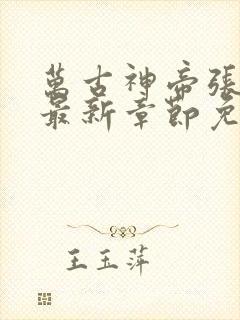 萬古神帝張
最新章節免
王玉萍